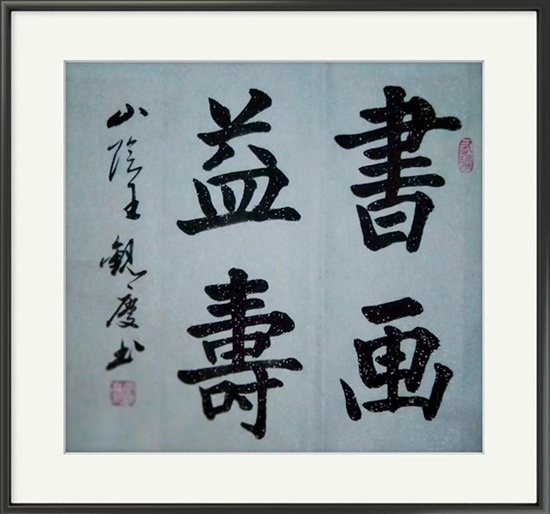 書画
益壽
山陰王觀慶书